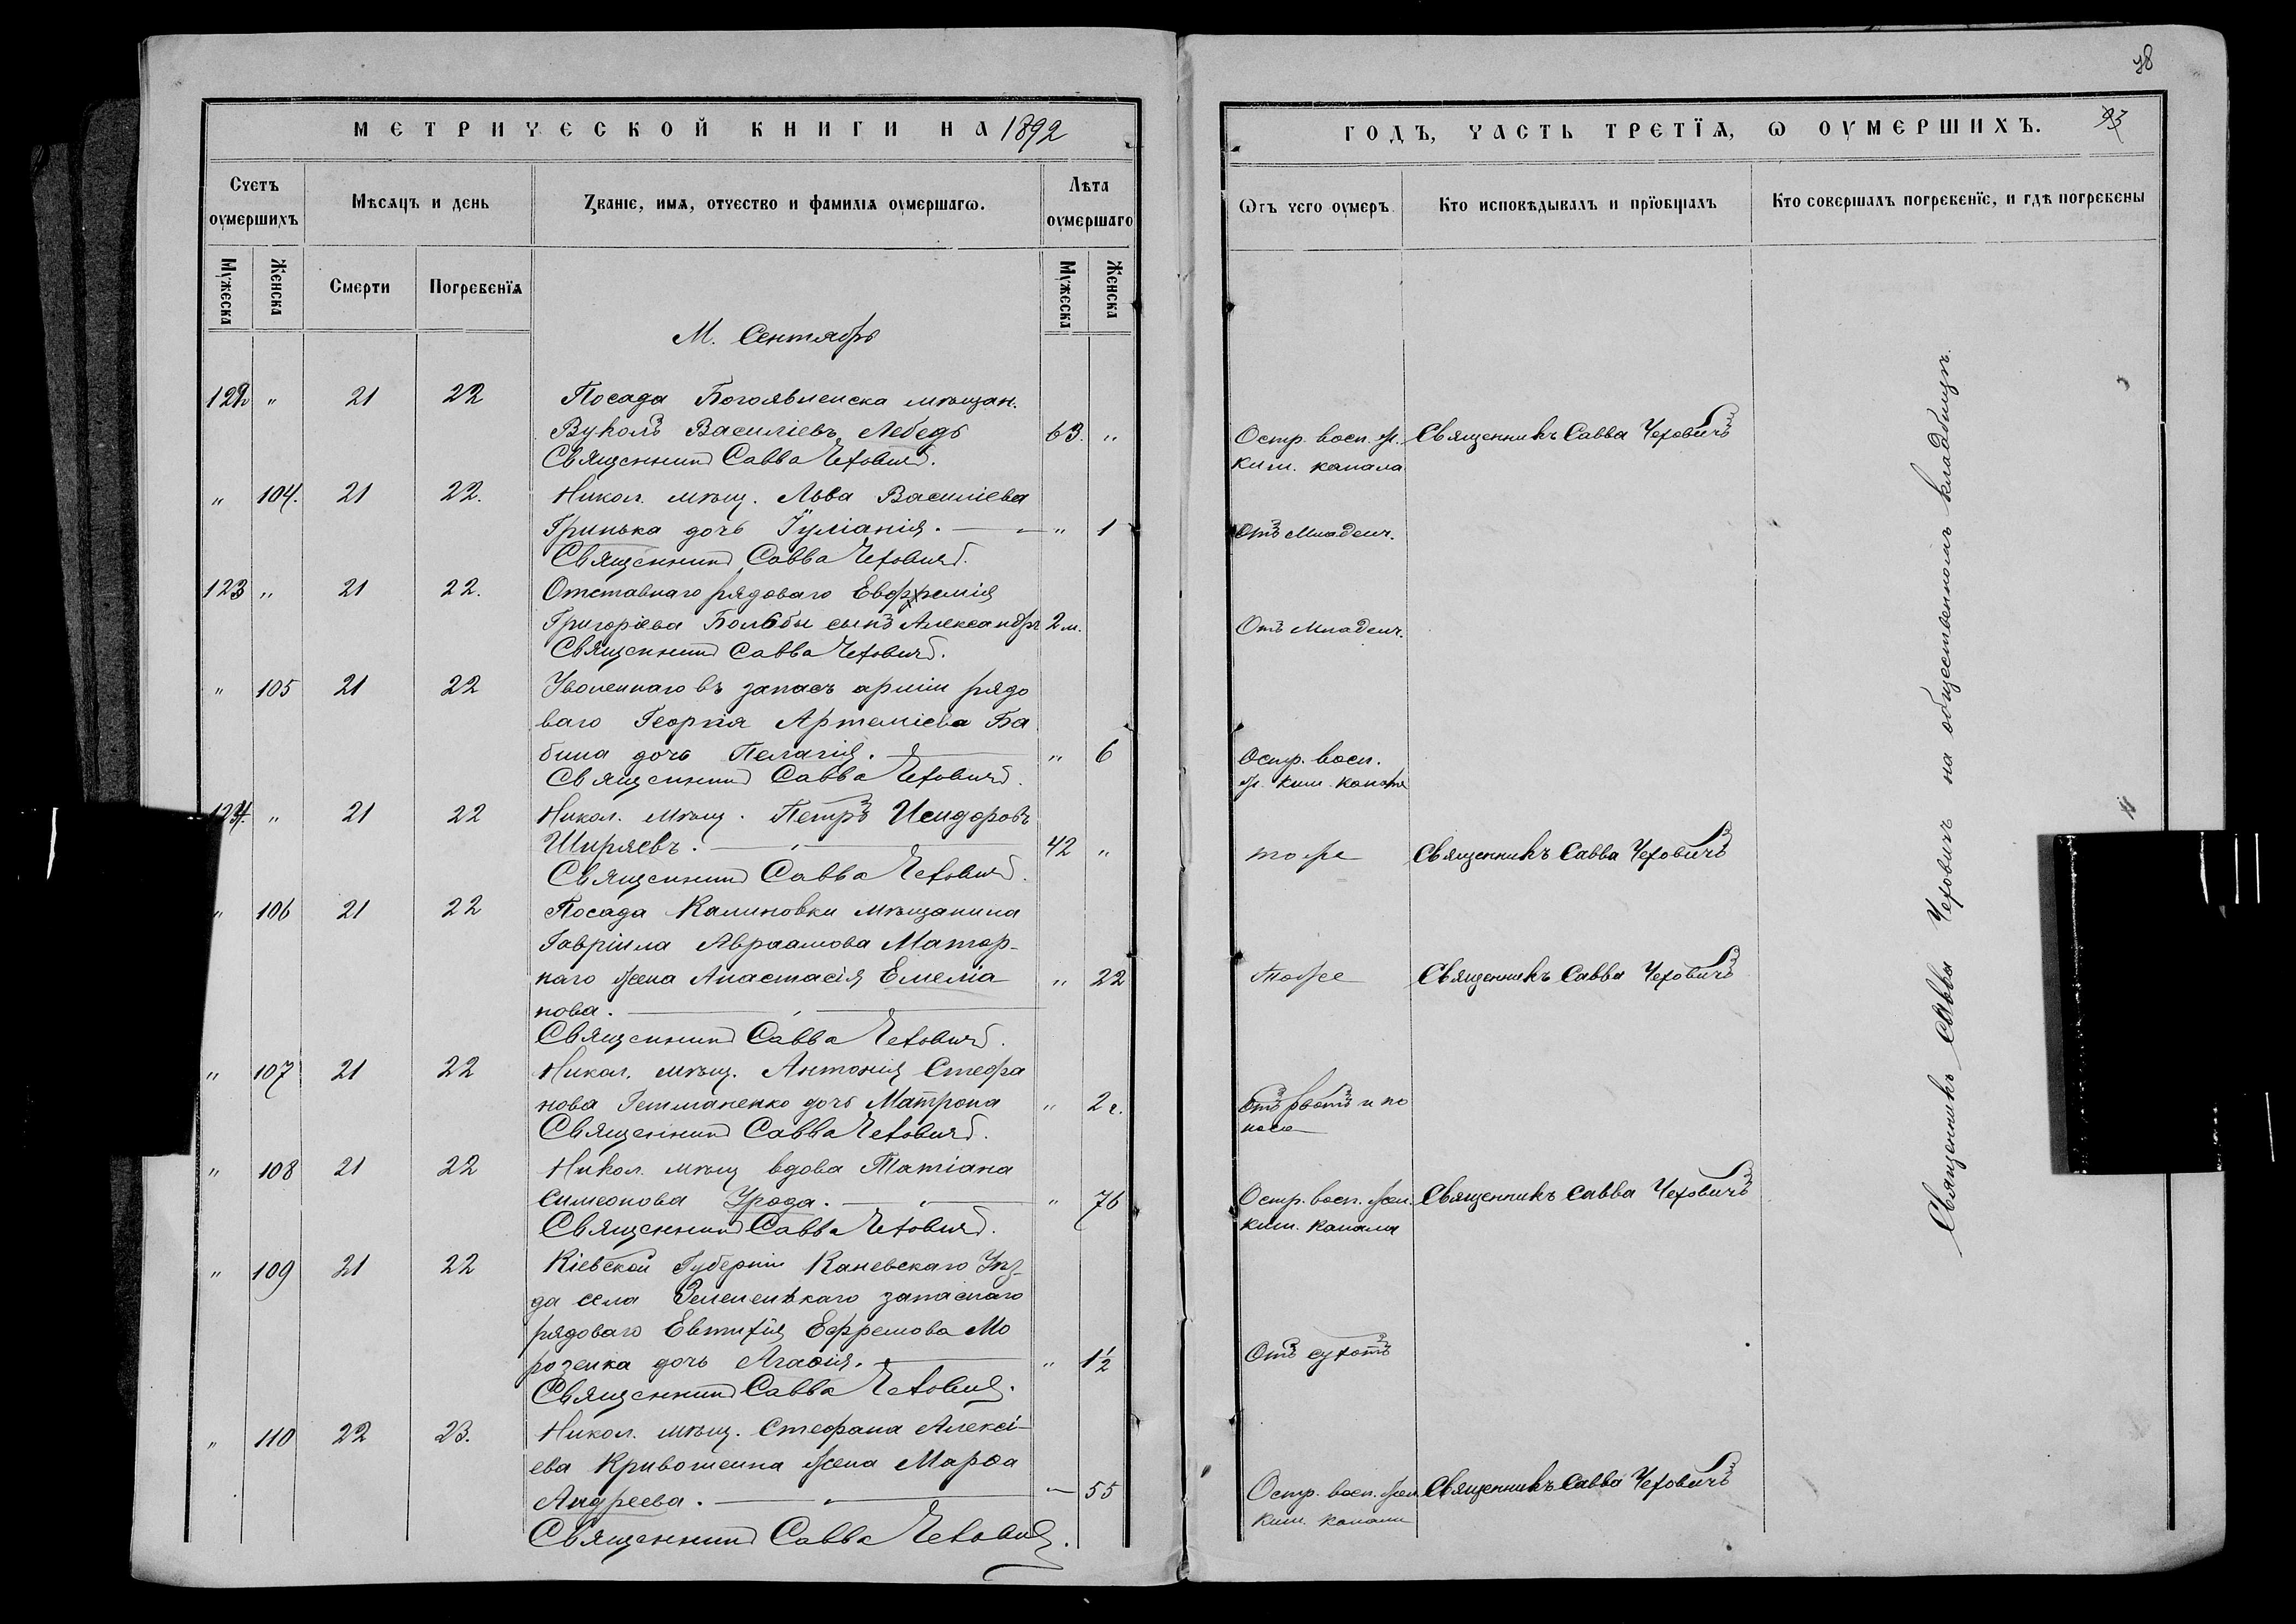 38
МЕТРИЧЕСКОЙ КНИГИ НА 1892
ГОДЪ, ЧАСТЬ ТРЕТЇѦ, Ѡ ОУМЕРШИХЪ. 93
Счетъ оумершихъ
Мѣсѧцъ и день
Званіе, имѧ, отчество и фамиліѧ оумершагѡ.
Лѣта оумершаго
Мужеска
Женска
Смерти
Погребенїѧ
Мужеска
Женска
Ѡтъ чего оумеръ
Кто исповѣдывалъ и прїобщалъ
Кто совершалъ погребенїе, и гдѣ погребены
М. Сентябрь
122 " 21 22 Посада Богоявленска мѣщан.
Вуколъ Василіевъ Лебедь 63. "
Священникъ Савва Чехович.
Остр. восп. ж. Священникъ Савва Чеховичъ
киш. канала
" 104. 21 22. Никол. мѣщ. Льва Василіева
Гринька дочь Іуліанія. " 1
Священникъ Савва Чехович.
Отъ Младенч.
123 " 21 22. Отставнаго рядоваго Евфремія
Григоріева Болбы сынъ Александръ 2 м.
Священникъ Савва Чехович.
Отъ Младенч.
" 105 21 22 Уволеннаго въ запасъ арміи рядо
ваго Георгія Артеміева Ба
бина дочь Пелагія. " 6
Священникъ Савва Чехович.
Остр. восп.
ж. киш. канала
124. " 21 22 Никол. мѣщ. Петръ Исидоровъ
Ширяевъ. 42 "
Священникъ Савва Чехович.
тоже Священникъ Савва Чеховичъ
" 106 21 22 Посада Калиновки мѣщанина
Гавріила Авраамова Матор-
наго жена Анастасія Емеліа
нова. " 22
Священникъ Савва Чехович.
Тоже Священникъ Савва Чеховичъ
" 107 21 22 Никол. мѣщ. Антонія Стефа
нова Гетманенко дочь Матрона " 2 г.
Священникъ Савва Чехович.
Отъ рвотъ и по
носа
" 108 21 22 Никол. мѣщ вдова Татіана
Симеонова Урода. " 76
Священникъ Савва Чехович.
Остр. восп. жел. Священникъ Савва Чеховичъ
киш. канала
" 109 21 22 Кіевской Губерніи Каневскаго Уѣз-
да села запаснаго
рядоваго Евтихія Ефремова Мо
розенка дочь Агафія. " 1½
Священникъ Савва Чехович.
Отъ сухотъ
" 110 22 23. Никол. мѣщ. Стефана Алексі-
ева Кривошеина жена Марѳа
Андреева. " 55
Священникъ Савва Чехович.
Остр. восп. жел. Священникъ Савва Чеховичъ
киш. канала
Священникъ Савва Чеховичъ на общественномъ кладбищѣ.